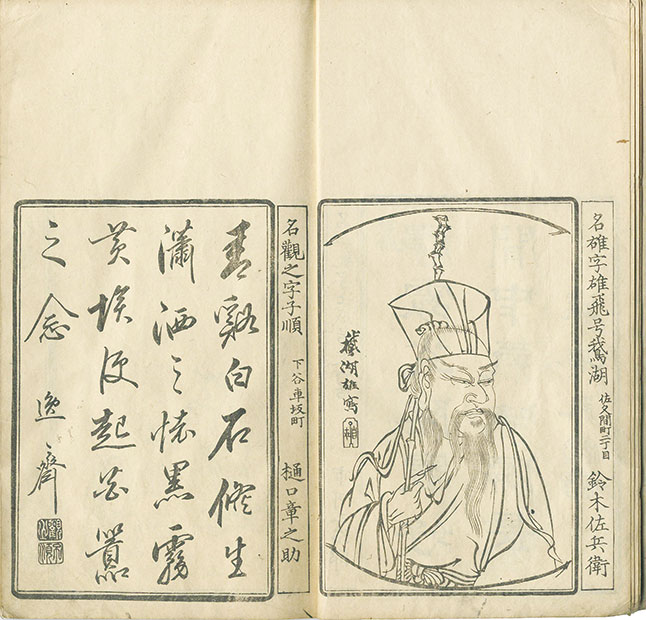 名雄字雄飛号鵞湖 佐久間町二丁目 鈴木佐兵衛
鵞湖雄寫
名觀之字子順 下谷車坂町 樋口章之助
青谿白石倐生
瀟洒之懐黒霧
黄埃便起炎囂
之念 逸齋